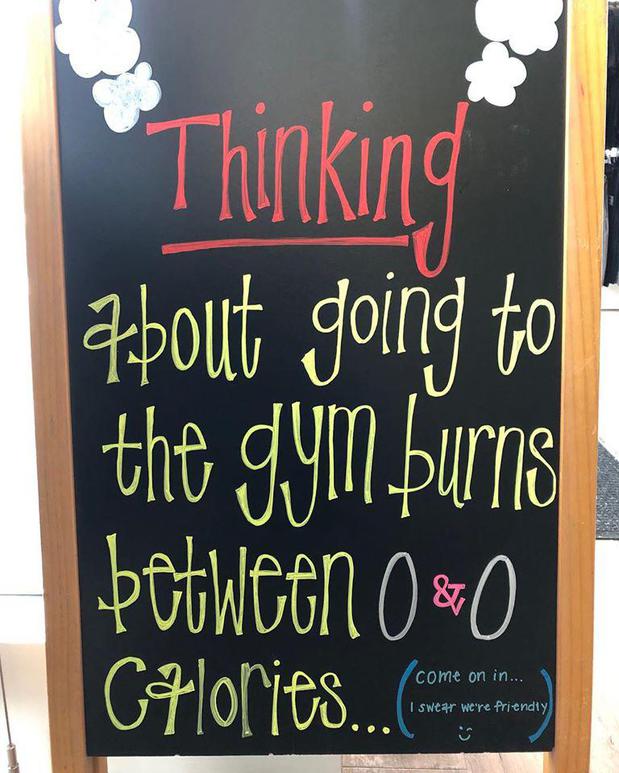 Thinking
about going to
the gym burns
between 0 & 0
Calories...
(come on in...
I swear we're friendly)
:)